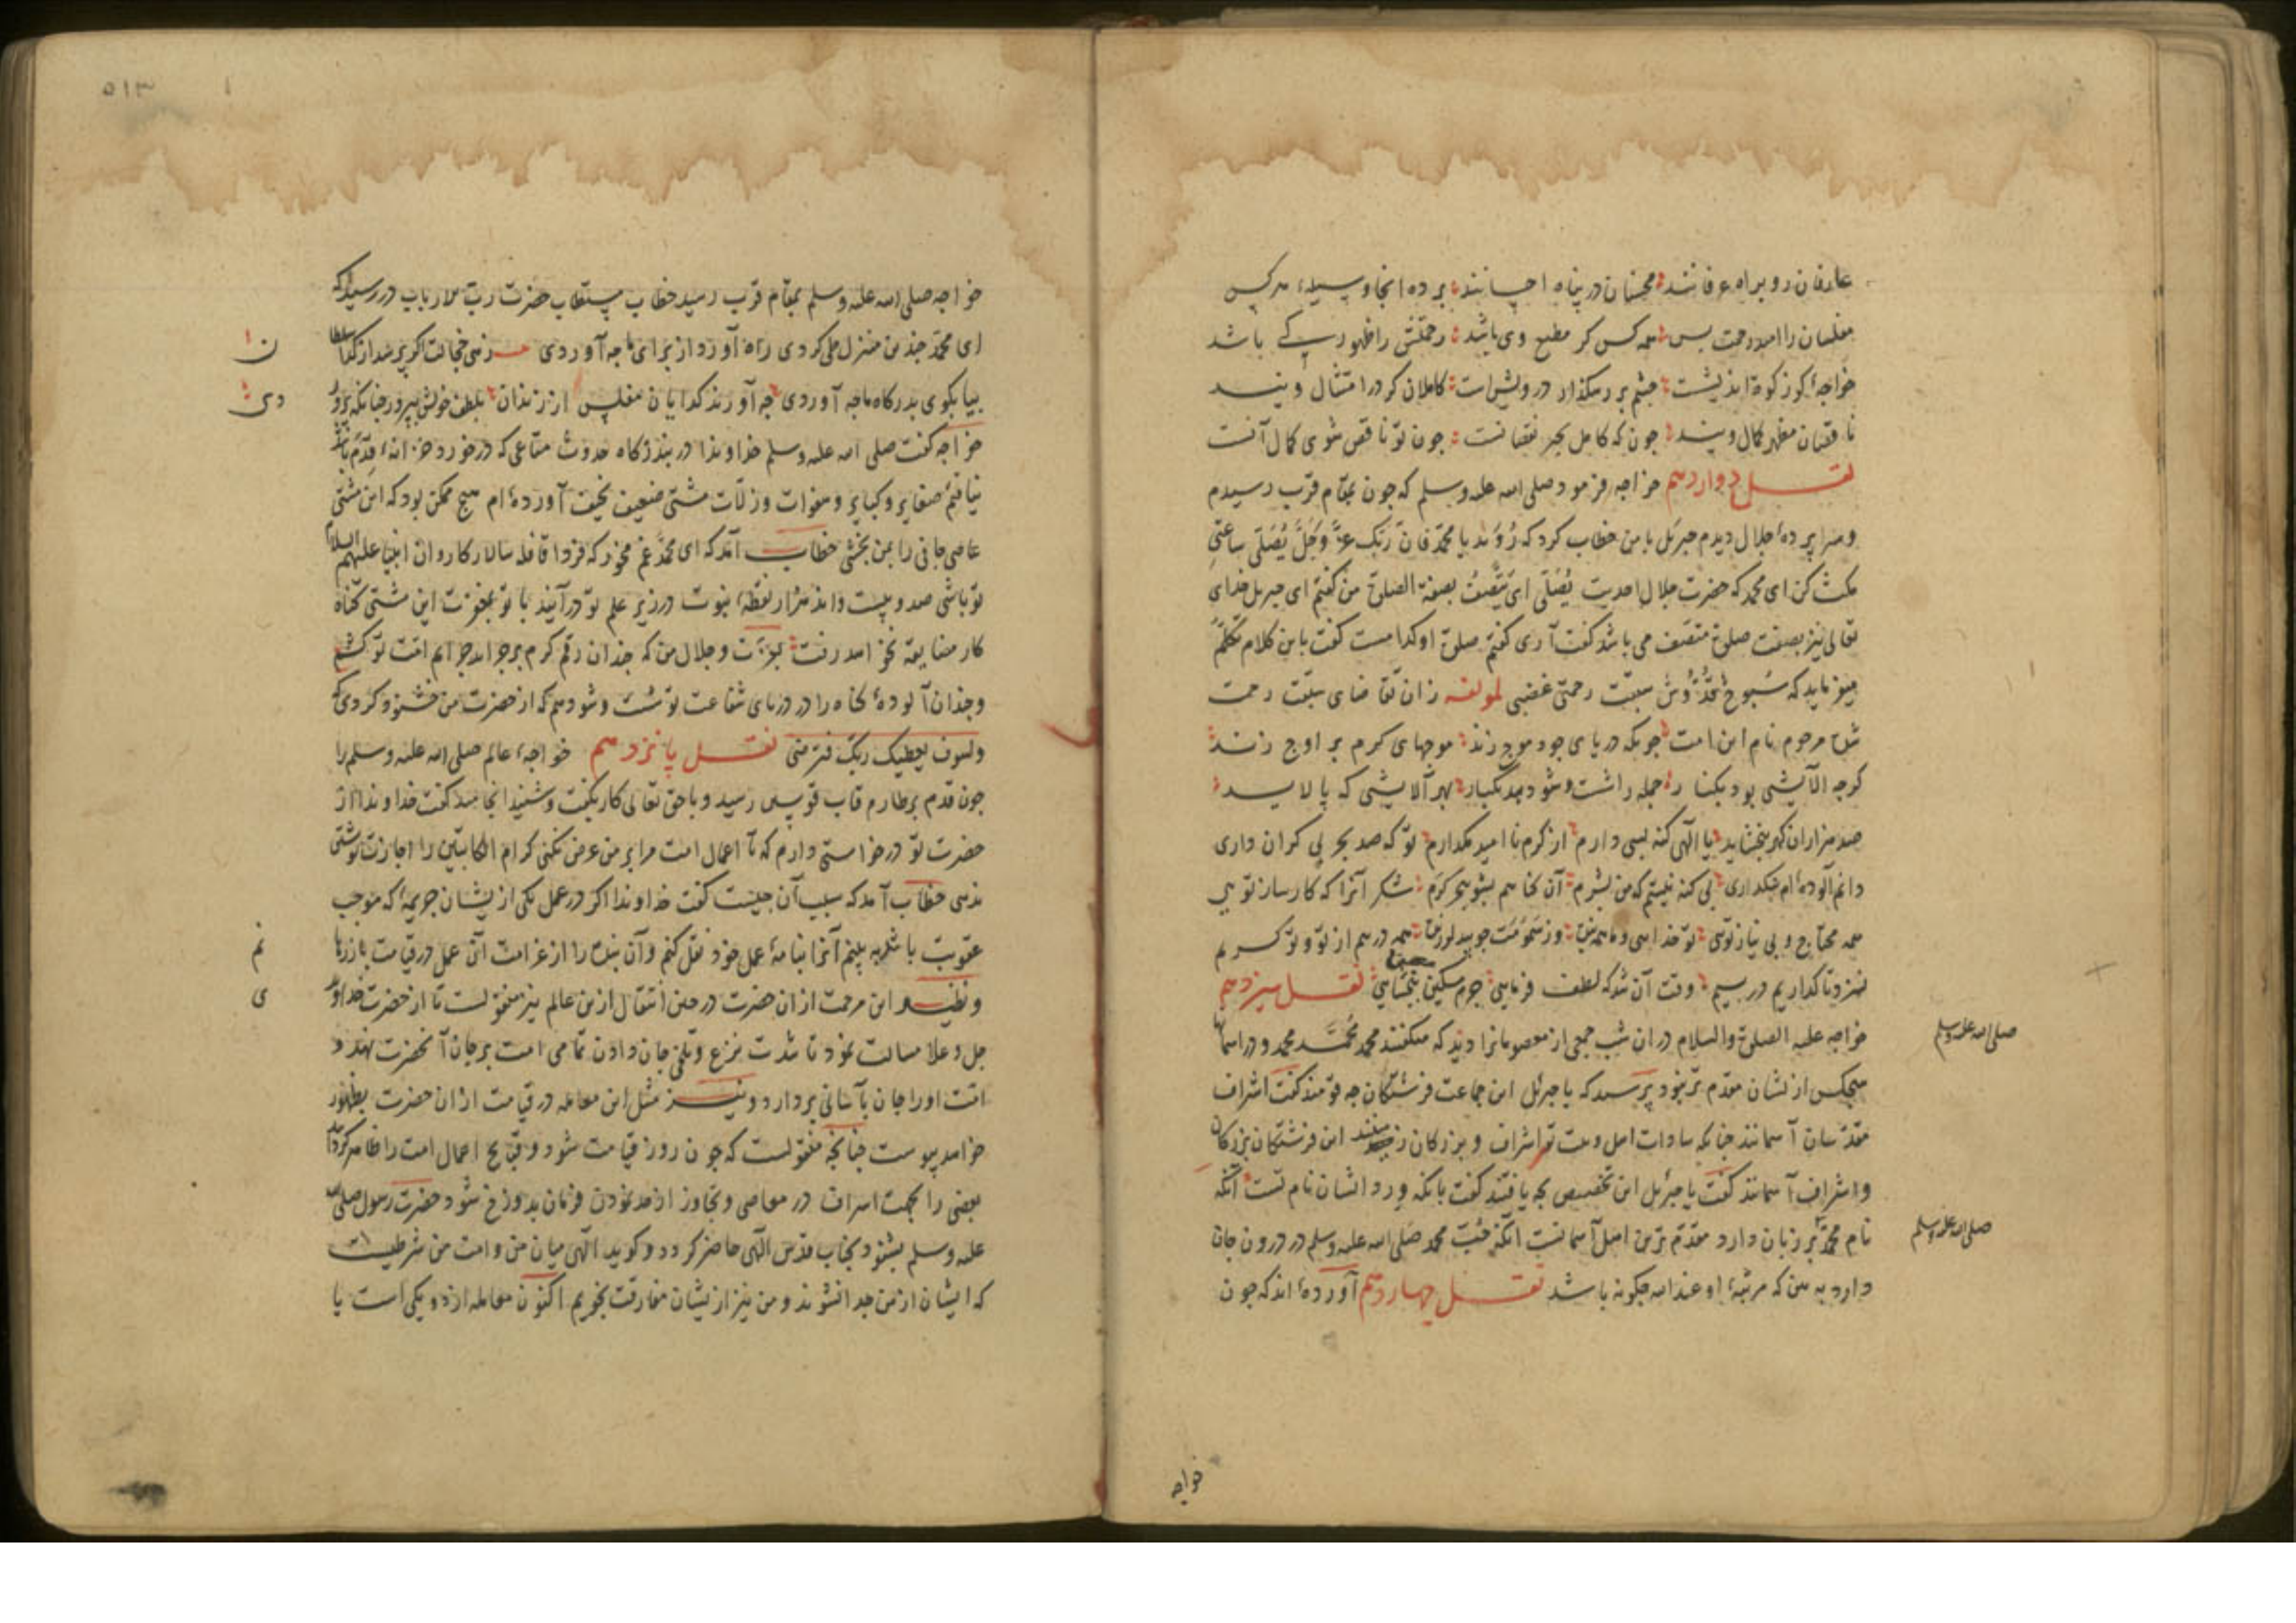 عارفان رو براه عرفانند محسنان در پناه احسانند برده اینجا وسیلهٔ هرکس
مفلسان را امید رحمت بس همه کس کر مطیع وی باشد رحمتش را ظهور کی باشد
خواجهٔ کوز کوة اندیشست چشم بر رهکذار درویش است کاملان کر در امتثال ویند
ناقصان مظهر کمال ویند چون که کامل بجز نقصانست چون تو ناقص شوی کمال آنست
نقل دوازدهم خواجه فرمود صلی الله علیه وسلم که چون بمقام قرب رسیدم
وسرا پردهٔ جلال دیدم جبرئیل با من خطاب کرد که رُوَید یا محمد فان ربک عزّ وجلّ یُصَلّی ساعتی
مکث کن ای محمد که حضرت جلال احدیت یُصَلّی ای یتّصف بصفة الصلوة من کفتم ای جبریل خدای
تعالی نیز بصفت صلوة متصف می باشد کفت آری کفتم صلوة او کدامست کفت باین کلام تکلم
میفرماید که سبوح قدّوس سبقت رحمتی غضبی لمولفه زان تقاضای سبقت رحمت
شد مرحوم نام این امت چونکه دریای جود موج زند موجهای کرم بر اوج زند
کرچه آلایشی بود بکنار جمله را شست وشو دهد یکبار بهر آلایشی که پالاید
صد هزاران کهر ببخشاید یا الهی کنه بسی دارم از کرم نا امید مکذارم تو که صد بحر بی کران داری
دانم آلوده ام نکذاری بی کنه نیستم که من بشرم آن کناهم بشو ببحر کرم شکر آنرا که کارساز تویی
همه محتاج و بی نیاز تویی تو خدایی و ما همه
نزد تا کداریم در سیم وقت آن شد که لطف فرمایی جرم مسکین ببخشایی نقل سیزدهم
خواجه علیه الصلوة والسلام در ان شب جمعی از معصومانرا دید که میکفتند محمد محمد محمد و در اسمانها
هیچکس از نشان مقدم تر نبود پرسید که یا جبرئل این جماعت فرشتکان چه قومند کفت اشراف
مقدسان آسمانند چنانکه سادات اهل وملت تو اشراف و بزرکان زمینند این فرشتکان بزرکان
واشراف آسمانند کفت یا جبرئیل این تخصیص بچه یافتند کفت بانکه ورد ایشان نام تست آنکه
نام محمد بر زبان دارد مقدم ترین اهل آسمانست آنکه محبت محمد صلی الله علیه وسلم در درون جان
دارد به بین که مرتبهٔ او عند الله چکونه باشد نقل چهاردهم آورده اند که چون
صلی الله علیه وسلم
صلی الله علیه وسلم
خواجه
۵۱۳
خواجه صلی الله علیه وسلم بمقام قرب رسید خطاب مستطاب حضرت رب الارباب در رسید که
ای محمد چندین منزل طی کردی راه آورد از برای ما چه آوردی زهی خجالت اکر پرسد از کدا سلطان
بیا بکوی بدرکاه ما چه آوردی چه آورند کدایان مفلس ارزندان بلطف خویش بپرور چنانکه پروردی
خواجه کفت صلی الله علیه وسلم خداوندا در بندرکاه حدوث متاعی که درخورد خزانهٔ قدم باشد
نیافتم صغایر وکبایر وهفوات وزلات مشتی ضعیف نحیف آورده ام هیچ ممکن بود که این مشتی
عاصی جانی را بمن بخشی خطاب آمد که ای محمد غم مخور که فردا قافله سالار کاروان انبیا علیهم السلام
تو باشی صد وبیست واند هزار نقطهٔ نبوت در زیر علم تو در آیند با تو بمغفرت این مشتی کناه
کار مضایقه نخواهد رفت بعزت وجلال من که چندان رقم کرم بر جراید جرایم امت تو کشم
وچندان آلودهٔ کناه را در دریای شفاعت تو شست وشو دهم که از حضرت من خشنود کردی که
ولسوف یعطیک ربک فترضی نقل پانزدهم خواجهٔ عالم صلی الله علیه وسلم را
چون قدم بر طارم قاب قوسین رسید و با حق تعالی کار بکفت وشنید انجامید کفت خداوندا از
حضرت تو درخواستی دارم که تا اعمال امت مرا بر من عرض نکنی کرام الکاتبین را اجازت نوشتن
ندهی خطاب آمد که سبب آن چیست کفت خداوندا اکر در عمل یکی از ایشان جریمهٔ که موجب
عقوبت باشد به بینم آنرا بنامهٔ عمل خود نقل کنم وآن بنده را از غرامت آن عمل در قیامت باز رهانم
ونظیر این مرحمت از ان حضرت در حین انتقال ازین عالم نیز منقولست تا از حضرت خداوندی
جل وعلا مسالت نمود تا شدت نزع وتلخی جان دادن تمامی امت بر جان آنحضرت نهند و
امت اورا جان بآسانی بردارد ونیز مثل این معامله در قیامت از ان حضرت بظهور
خواهد پیوست چنانچه منقولست که چون روز قیامت شود وقبایح اعمال امت را ظاهر کردانند
بعضی را بجهت اسراف در معاصی وتجاوز از حد نمودن فرمان بدوزخ شود حضرت رسول صلی الله
علیه وسلم بشنود بجناب قدس الهی حاضر کردد وکوید الهی میان من وامت من شرطیست
که ایشان از من جدا نشوند ومن نیز از ایشان مفارقت نجویم اکنون معامله از دو یکی است یا